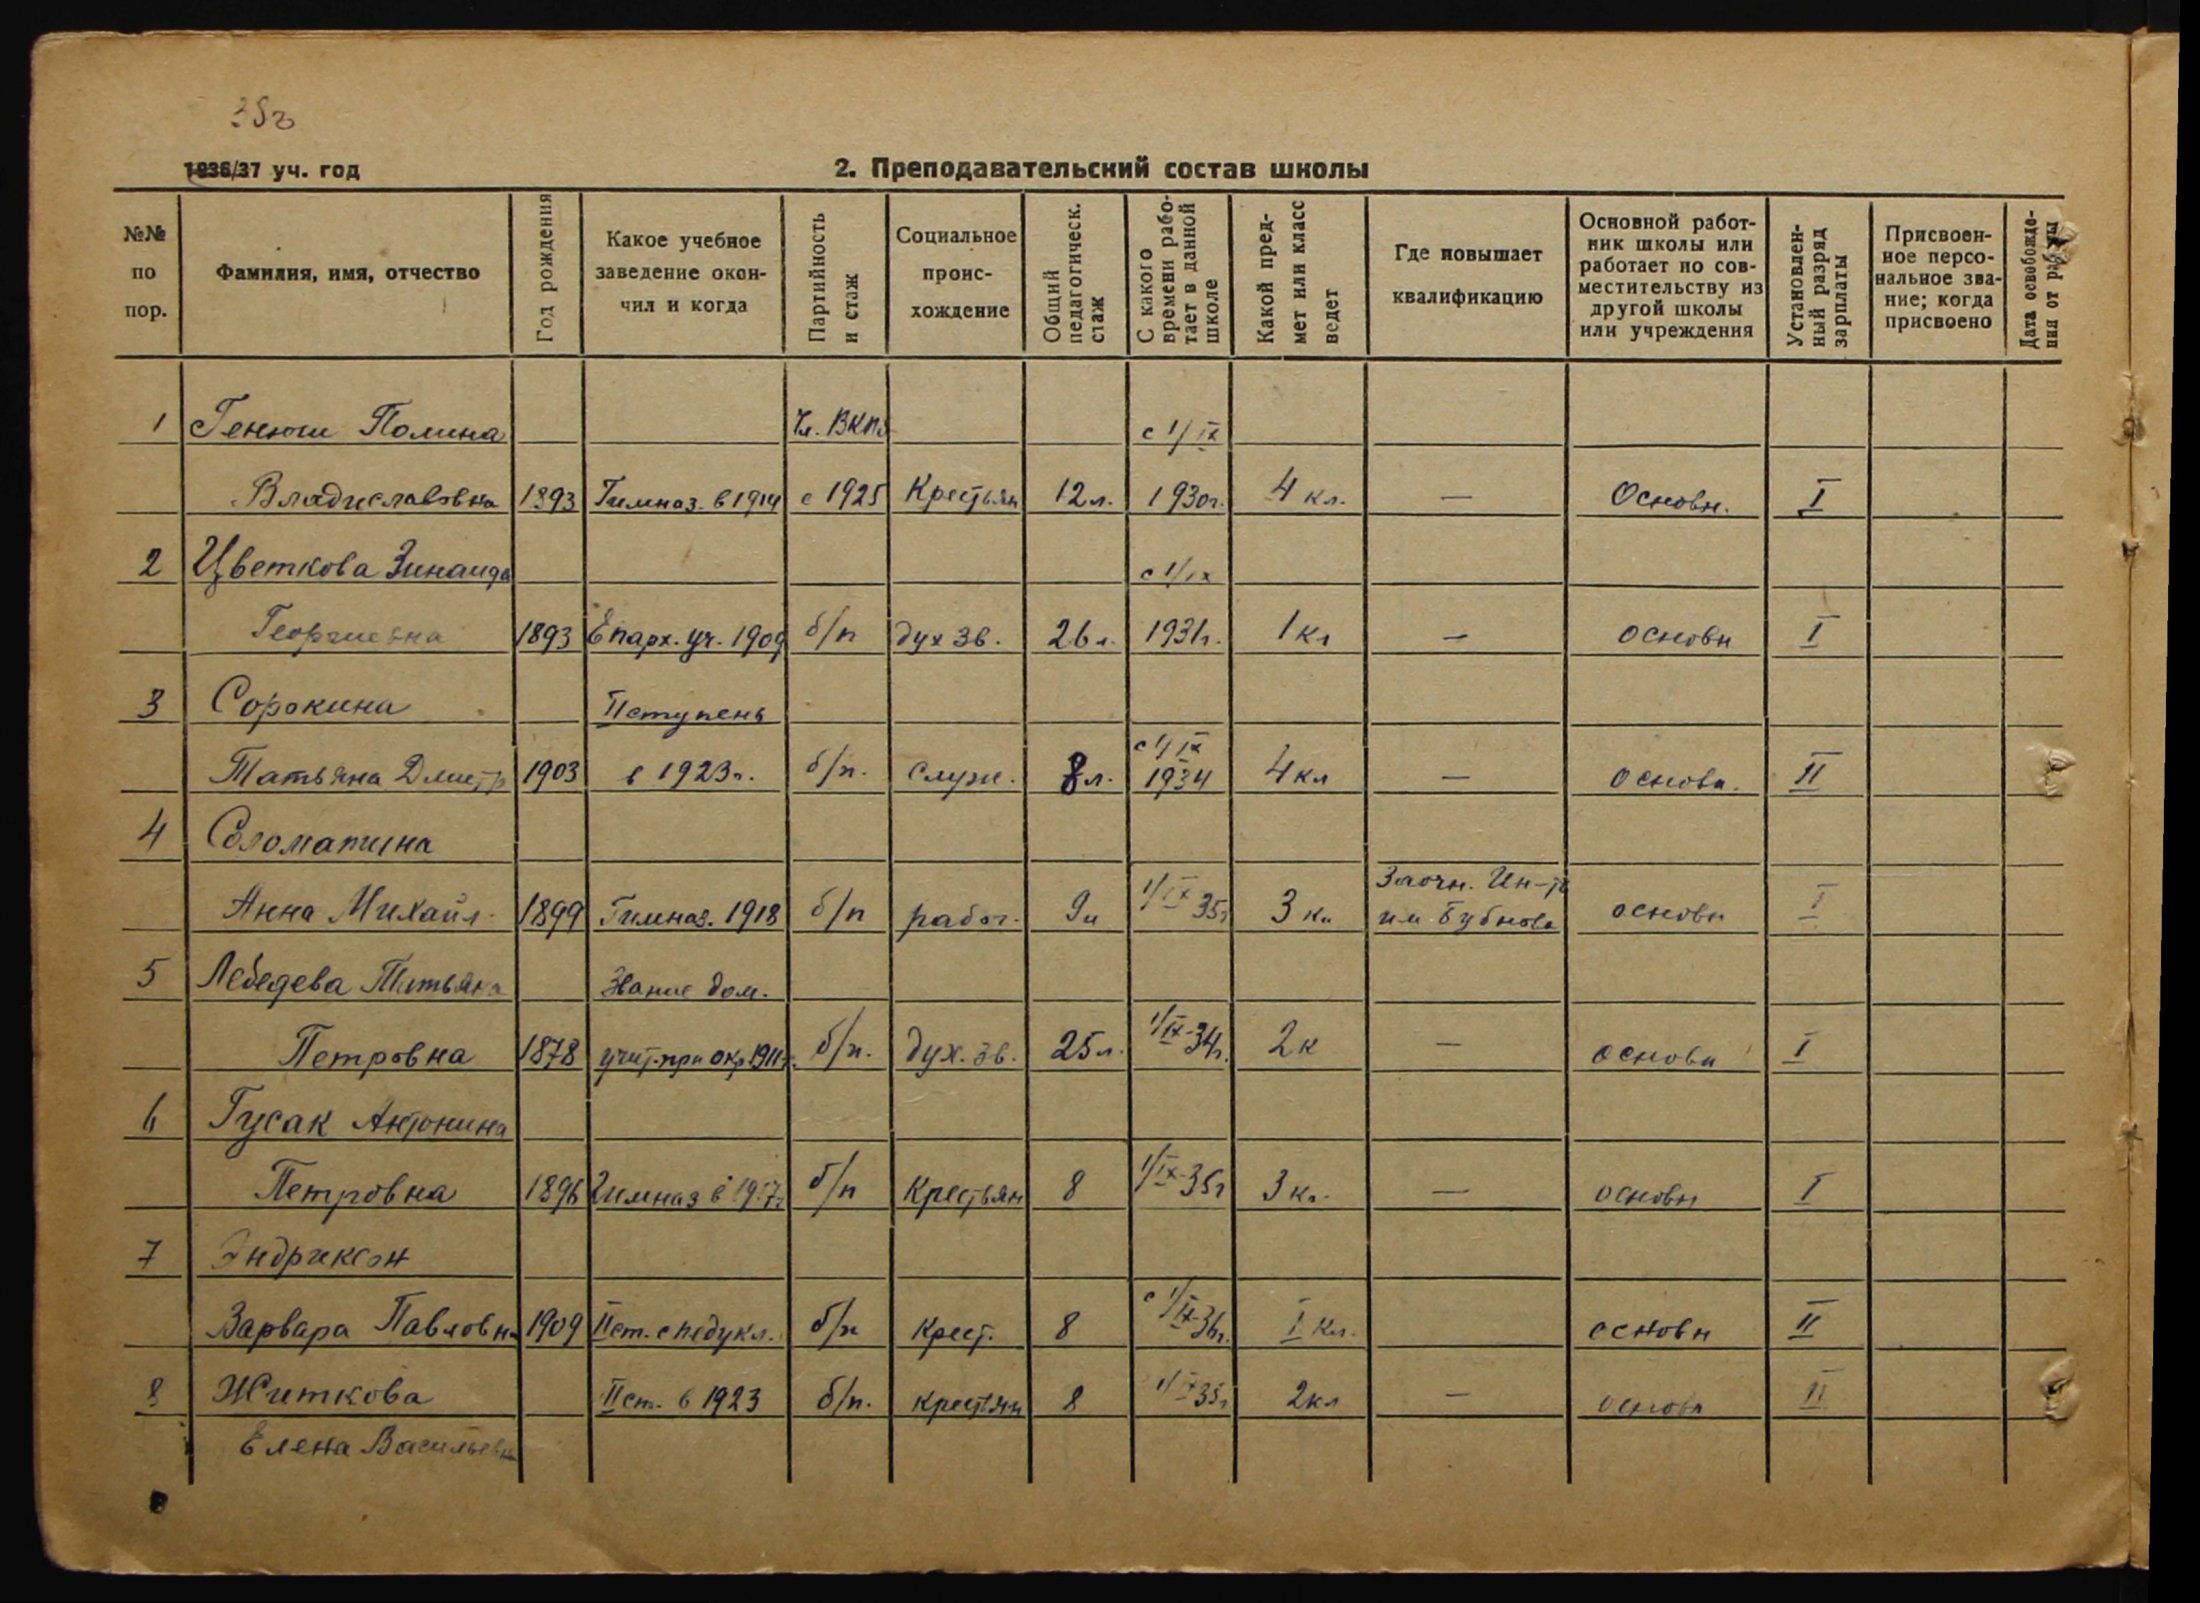 35г
1936/37 уч. год
2. Преподавательский состав школы
№№ по пор.
Фамилия, имя, отчество
Год рождения
Какое учебное заведение окончил и когда
Партийность и стаж
Социальное происхождение
Общий педагогическ. стаж
С какого времени работает в данной школе
Какой предмет или класс ведет
Где повышает квалификацию
Основной работник школы или работает по совместительству из другой школы или учреждения
Установленный разряд зарплаты
Присвоенное персональное звание; когда присвоено
Дата освобождения от работы
1 Генюш Полина Чл. ВКПб с 1/IX
Владиславовна 1893 Гимназ. в 1914 с 1925 Крестьян 12 л. 1930г. 4 кл. — Основн. I
2 Цветкова Зинаида с 1/IX
Георгиевна 1893 Епарх. уч. 1909 б/п дух зв. 26 л. 1931г. 1 кл — основн I
3 Сорокина II ступень
Татьяна Дмитр 1903 в 1923г. б/п. служ. 8 л. с 1/IX 1934 4 кл — основн. II
4 Соломатина
Анна Михайл. 1899 Гимназ. 1918 б/п рабоч. 9 л 1/IX 35г 3 кл Заочн. Ин-т им. Бубнова основн I
5 Лебедева Татьяна Звание дом.
Петровна 1878 учит. при окр 1911г. б/п. дух. зв. 25 л. 1/IX-34г. 2 к — основн I
6 Гусак Антонина
Петровна 1896 Гимназ в 1917г б/п крестьян 8 1/IX-35г 3 кл. — основн I
7 Эндриксон
Варвара Павловн 1909 II ст. с педукл. б/п крест. 8 с 1/IX-36г. I кл. основн II
8 Житкова II ст. в 1923 б/п. крестьян 8 1/IX 35г 2 кл — основн II
Елена Васильевна